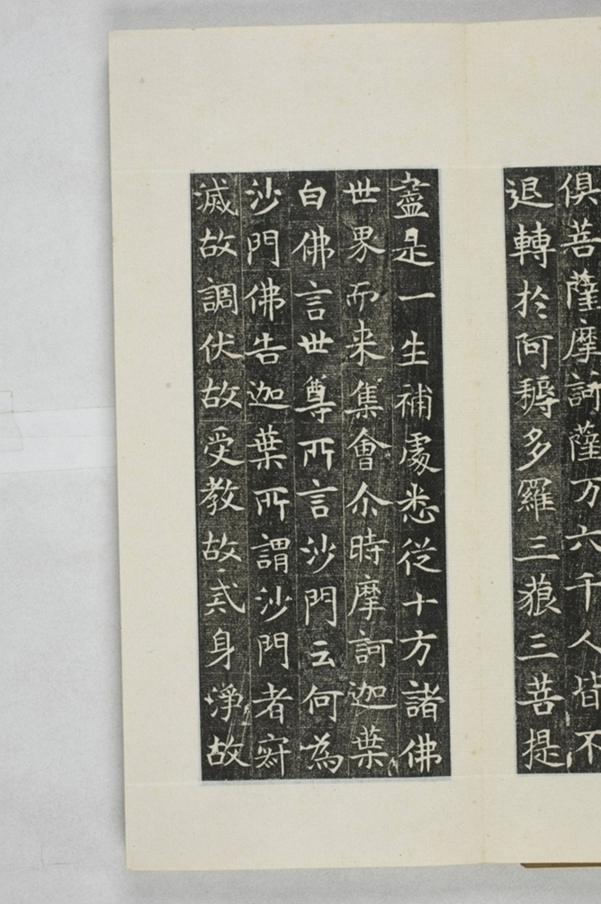 俱菩薩摩訶薩万六千人皆不
退轉於阿耨多羅三𦬊三菩提
盡是一生補處悉從十方諸佛
世界而来集會尒時摩訶迦葉
白佛言世尊所言沙門云何為
沙門佛告迦葉所謂沙門者寂
滅故調伏故受教故戒身淨故